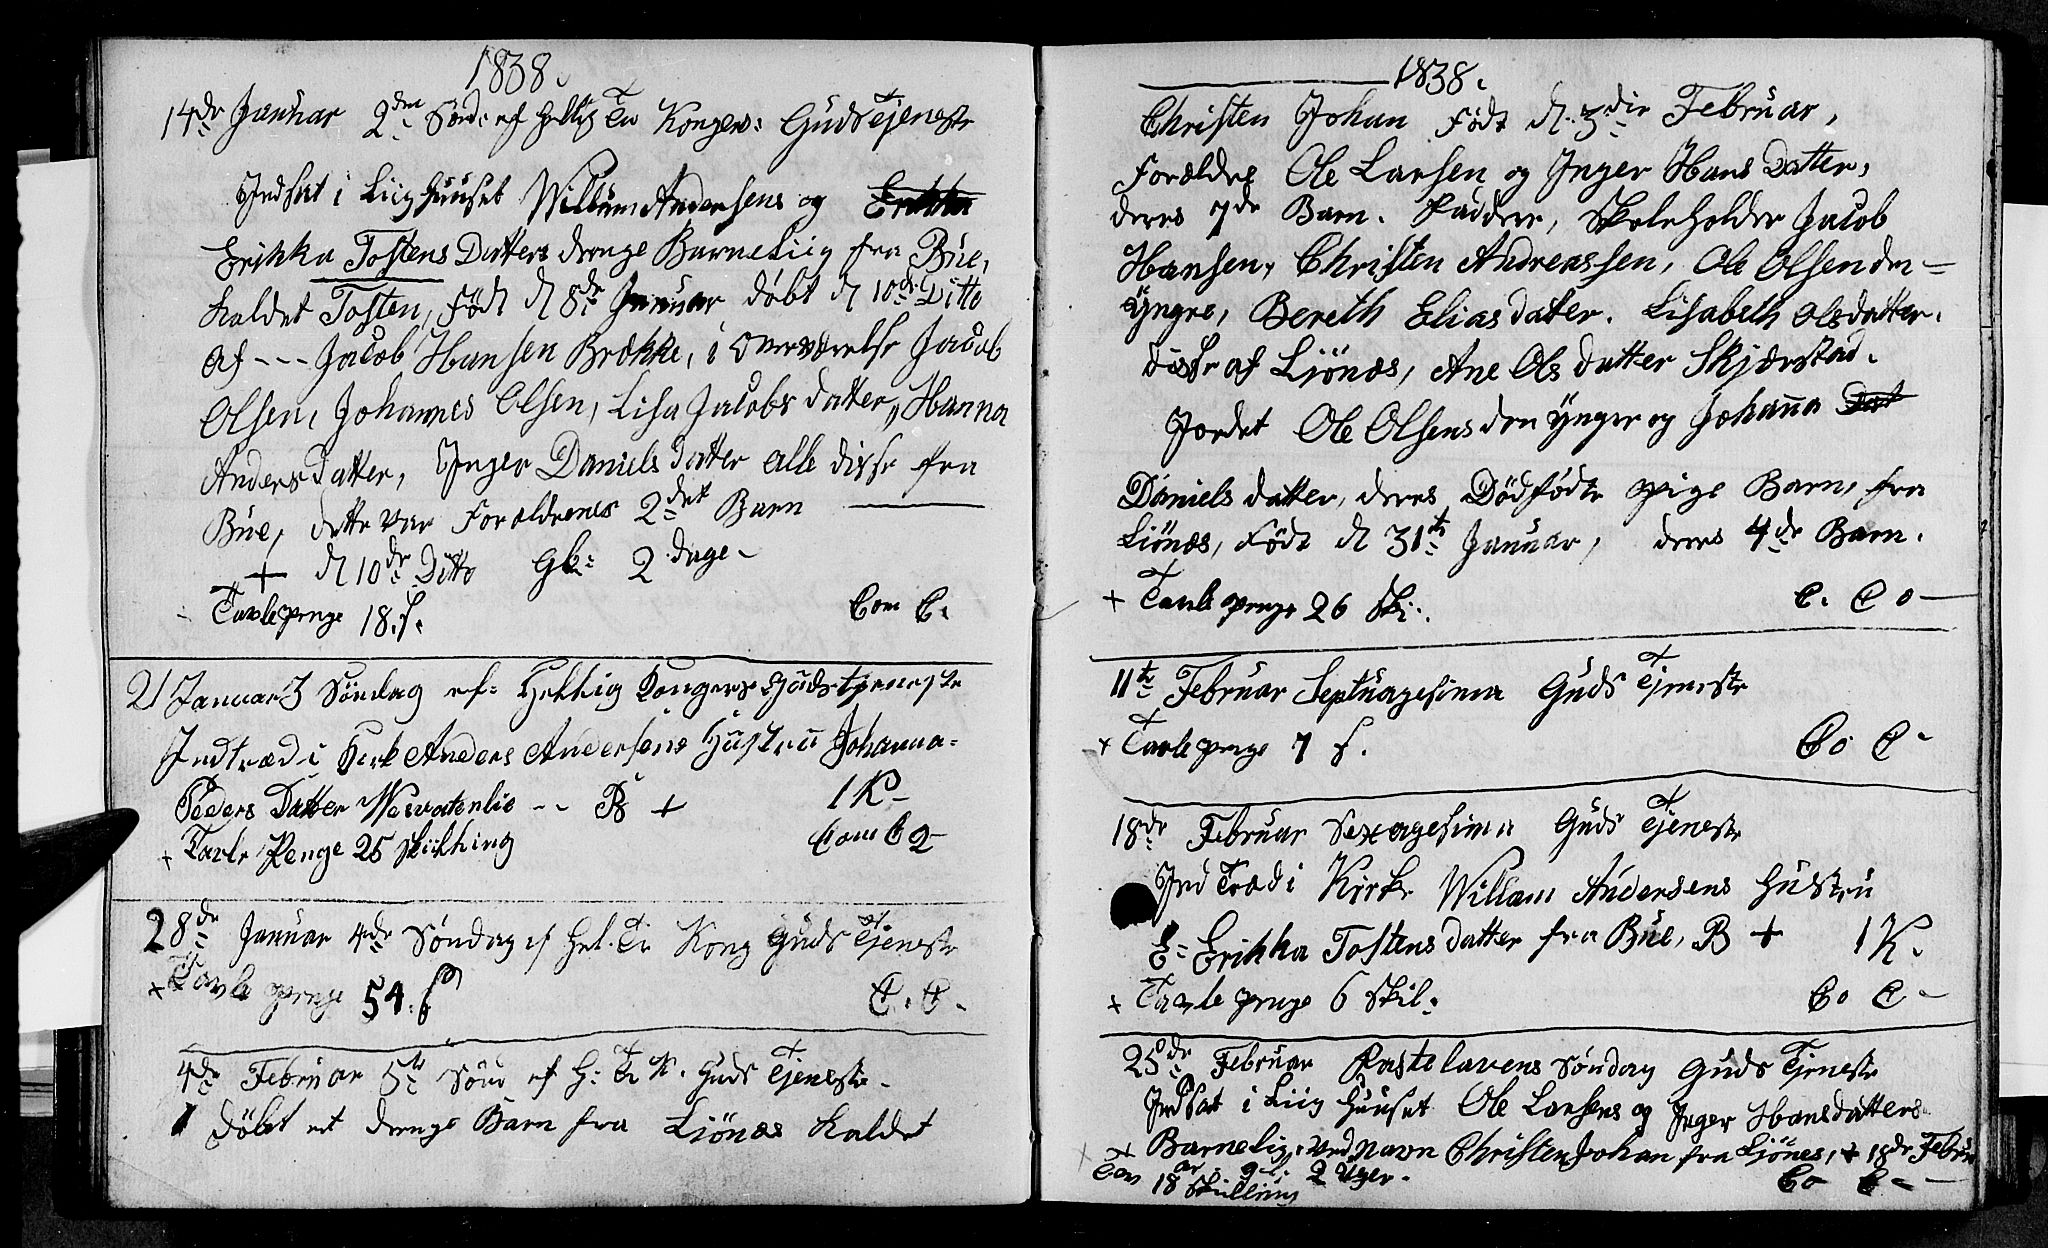 1838.
14de Januar 2den Sønd: ef Hellig Tre Konger: GudsTjeneste
Indsat i Liighuuset Willum Andersens og Erikka
Erikka TostensDatters drenge Barneliig fra Bue,
kaldet Tosten, Født d 8de Januar døbt d 10de Ditto
Af --- Jacob Hansen Brekke, i Overværelse Jacob
Olsen, Johannes Olsen, Lisa Jacobs datter, Hanna
Andersdatter, Inger Daniels datter alle disse fra
Bue, dette var Forældrenes 2det Barn
+ d 10de Ditto Gl: 2 dage -
Tavlepenge 18 s. Com C.
21 Januar 3 Søndag ef: Hellig Konger GudsTjeneste
Indtræd i Kirk Anders Andersens Hustru Johanna=
Peders Datter Nesvatenlie -- B + 1 K-
+ Tavle Penge 25 skilling Com C 2-
28de Januar 4de Søndag ef Hel. Tr Kong Guds Tjeneste
+ Tavle penge 54. s C. C.
4de Februar 5te Sønd ef H: Tr K. Guds Tjeneste.
1 Døbt et drenge Barn fra Liönes kaldet
1838.
Christen Johan Født d. 3die Februar,
Forældre Ole Larsen og Inger Hans Datter,
deres 7de Barn. Faddere, Skoleholder Jacob
Hansen, Christen Andreassen, Ole Olsen den -
Yngre, Bereth Elias datter. Lisabeth Olsdatter.
disse af Liönæs, Ane Ols datter Skjærstad.
Jordet Ole Olsens den Ynger og Johana Dat
Daniels datter, deres Dödfödte pige Barn, fra
Liönæs, Födt d 31te Januar, deres 4de Barn.
+ Tavle penge 26 Ski. C. C o -
11te Februar Septuagesima Guds Tjeneste
+ Tavle penge 7 s. Co C -
18de Februar Sexagesima Guds Tjeneste
Ind Træd i Kirke Willam Andersens Hustru
E= Erikka Tostens datter fra Bue, B + 1 K.
+ Tavle penge 6 Skil. Co C -
25de Februar Fastelavens Søndag Guds Tjeneste
Indsat i Liig Huuset Ole Larsens og Inger Hansdatters
Barnelig, ved navn Christen Johan fra Liönes, + 18de Febru
+ Tav 18 Skilling gl: 2 Uger. Co C - -